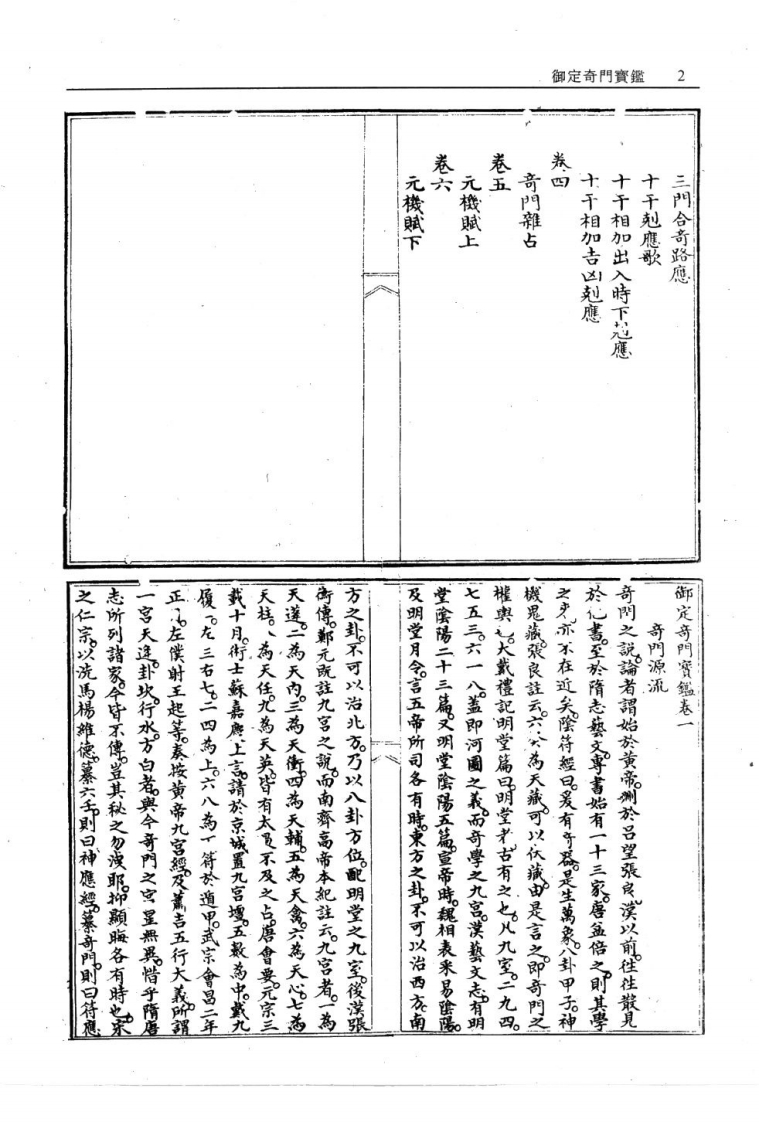 御定奇門寶鑑 2
三門合奇路應
十干剋應歌
十干相加出入時下剋應
十干相加吉凶剋應
卷四
奇門雜占
卷五
元機賦上
卷六
元機賦下
御定奇門寶鑑卷一
奇門源流
奇門之說論者謂始於黃帝刪於呂望張良漢以前往往散見
於他書至於隋志藝文專書始有一十三家唐益倍之則其學
之來亦不在近矣陰符經曰爰有奇器是生萬象八卦甲子神
機鬼藏張良註云六癸為天藏可以伏藏由是言之即奇門之
權輿也大戴禮記明堂篇曰明堂者古有之也凡九室二九四
七五三六一八蓋即河圖之義而奇學之九宮漢藝文志有明
堂陰陽二十三篇又明堂陰陽五篇宣帝時魏相表采易陰陽
及明堂月令言五帝所司各有時東方之卦不可以治西方南
方之卦不可以治北方乃以八卦方位配明堂之九室後漢張
衡傳鄭元既註九宮之說而南齊高帝本紀註云九宮者一為
天蓬二為天內三為天衝四為天輔五為天禽六為天心七為
天柱八為天任九為天英皆有太過不及之占唐會要元宗三
載十月術士蘇嘉慶上言請於京城置九宮壇五數為中戴九
履一左三右七二四為上六八為下符於遁甲武宗會昌二年
正月左僕射王起等奏按黃帝九宮經及蕭吉五行大義所謂
一宮天逢卦坎行水方白者與今奇門之宮星無異惜乎隋唐
志所列諸家今皆不傳豈其秘之勿洩耶抑顯晦各有時也宋
之仁宗以洗馬楊維德纂六壬則曰神應經纂奇門則曰符應